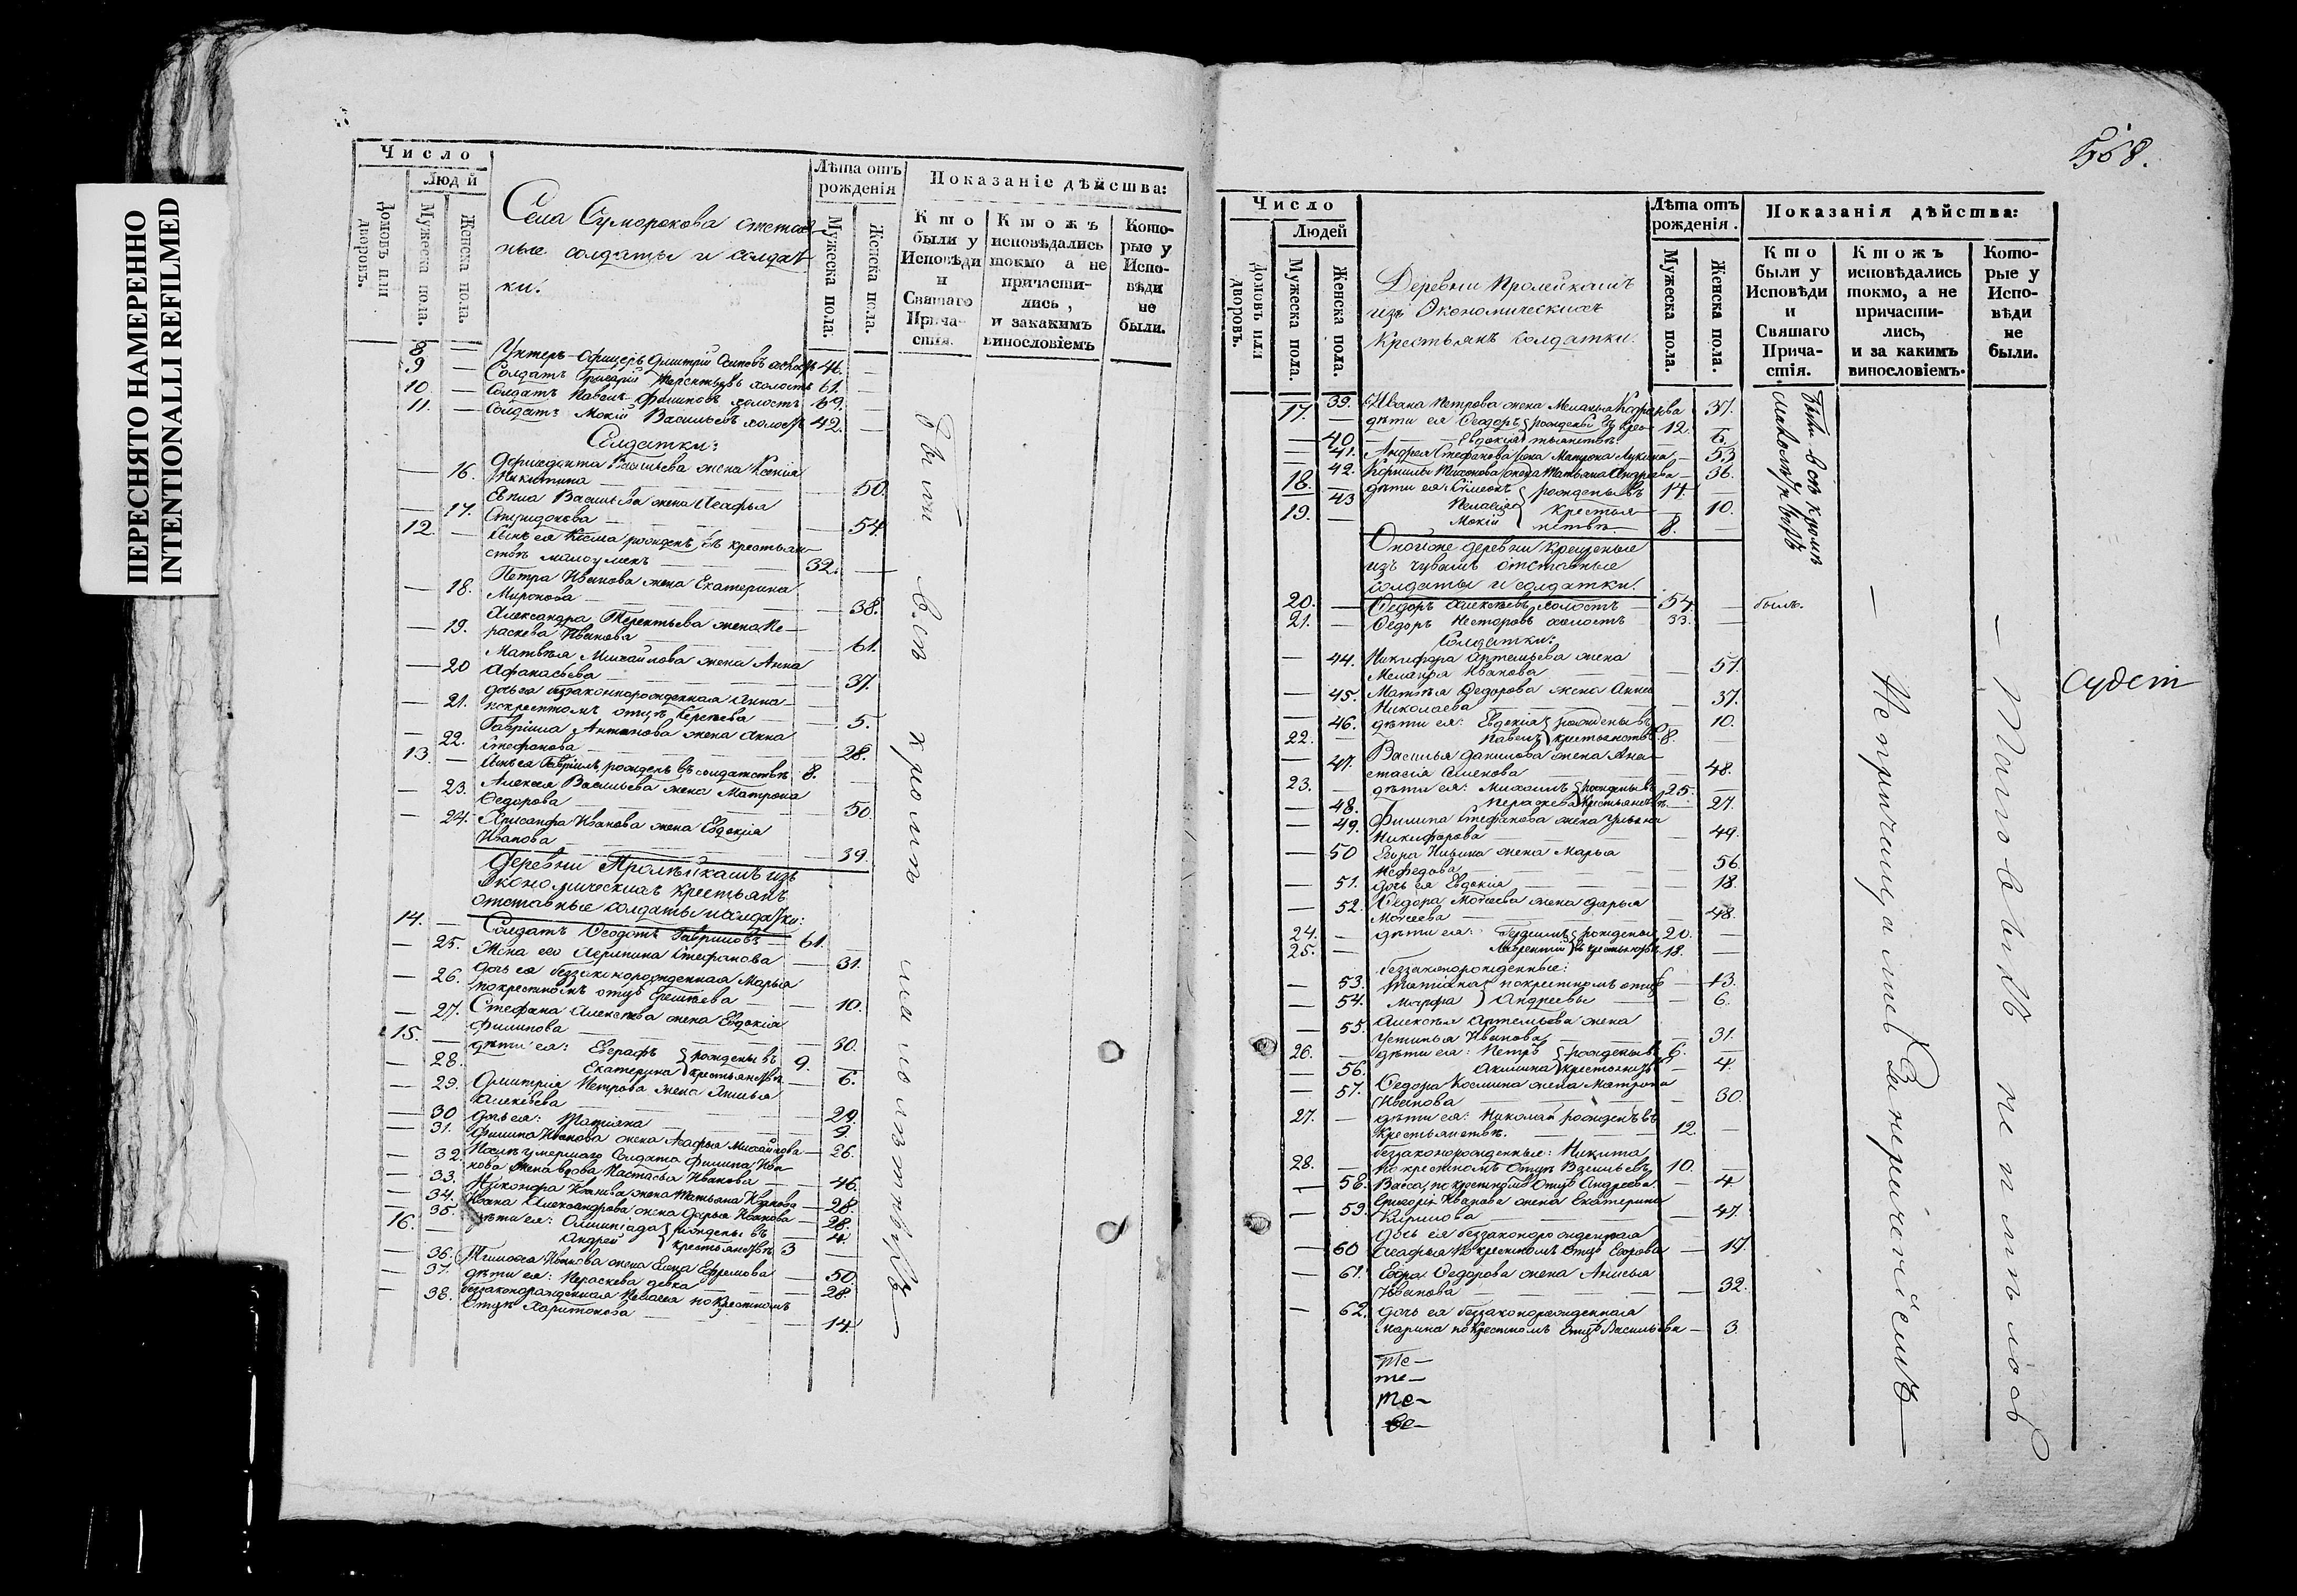 ПЕРЕСНЯТО НАМЕРЕННО
INTENTIONALLI REFILMED
Число
Людей
Домовъ или дворовъ.
Мужеска пола.
Женска пола.
Села Сумарокова отстав-
ные солдаты и солдат-
ки:
Лѣта отъ рожденія
Мужеска пола.
Женска пола.
Показаніе дѣйства:
Кто были у Исповѣди и Святаго Прича-стія.
Ктожъ исповѣдались токмо а не причасти-лись, и закакимъ винословіемъ
Кото-рые у Испо-вѣди не были.
8. — Унтеръ-Офицеръ Дмитрій Осиповъ 46. —
9 — Солдатъ Григорій Терентьевъ холостъ 61. —
10 — Солдатъ Павелъ Филиповъ холостъ 69. —
11. — Солдатъ Мокій Васильевъ холостъ 42. —
Солдатки:
Васильева жена Ксенія
— 16. Никитина — 50.
Васильева жена Агафья
— 17. Спиридонова — 54.
12. — Сынъ ея Козма рожденъ въ крестьян-
ствѣ малоуменъ 32. —
Петра Иванова жена Екатерина
— 18. Миронова — 38.
Александра Терентьева жена Пе-
— 19. раскева Иванова — 61.
Матвѣя Михайлова жена Анна
— 20 Афанасьева — 37.
дочь ея беззаконнорожденная Анна
— 21. покрестномъ отцѣ Сергѣева — 5.
Гавріила Антонова жена Анна
— 22. Стефанова — 28.
13. — Сынъ ея Гавріилъ рожденъ въ солдатствѣ 8. —
Алексея Васильева жена Матрона
— 23. Федорова — 50
— 24. Хрисанфа Иванова жена Евдокія
Иванова — 39.
Деревни Промѣйкашъ изъ
Экономическихъ крестьянъ
отставные солдаты и солдатки:
14. — Солдатъ Феодотъ Гавриловъ — 61. —
— 25. Жена его Агрипина Стефанова — 31.
дочь ея беззаконорожденная Марья
— 26. покрестномъ отцѣ — 10.
— 27. Стефана Алексѣева жена Евдокія
Филипова — 30.
15. — дѣти ея: Евграфъ } рождены въ 9. —
— 28. Екатерина } крестьянствѣ — 6.
— 29. Дмитрія Петрова жена
Алексѣева — 29.
— 30 дочь ея: Татіана — 9.
— 31. Филипа Иванова жена Агафья Михайлова — 26.
— 32. Послѣ умершаго Солдата Филипа Ива-
нова жена вдова Настасья Иванова — 46.
— 33. Никонора Иванова жена Татьяна Иванова — 28
— 34. Ивана Александрова жена Дарья Иванова — 28.
— 35. дѣти ея: Олимпіада } рождены въ — 4
16. — Андрей } крестьянствѣ 3 —
— 36. Тимофея Иванова жена Елена Ефремова — 50.
— 37. дѣти ея: Пераскева девка — 28.
беззаконорожденная Пелагея покрестномъ
— 38. Отцѣ Харитонова — 14.
были всѣ кромѣ малолѣтныхъ
568.
Число
Людей
Домовъ или дворовъ.
Мужеска пола.
Женска пола.
Деревни Промѣйкашъ
изъ Экономическихъ
крестьянъ солдатки:
Лѣта отъ рожденія.
Мужеска пола.
Женска пола.
Показанія дѣйства:
Кто были у Исповѣди и Святаго Прича-стія.
Ктожъ исповѣдались токмо, а не причасти-лись, и за какимъ винословіемъ.
Кото-рые у Испо-вѣди не были.
— 39. Ивана Петрова жена Меланья — 37.
17. — дѣти ея Феодоръ } рождены въ крес- 12. —
— 40 Евдокія } тьянствѣ — 6.
— 41. Андрея Стефанова жена Матрона Лукина — 53
— 42. Корнилы Тихонова жена Татьяна Андреева — 36.
18. — дѣти ея: Сѵмеонъ } рождены въ 14. —
— 43 Пелагія } крестья- — 10.
19. — Мокій } нствѣ 8. —
Оной же деревни крещеные
изъ чувашъ отставные
солдаты и солдатки:
20. — Федоръ Алексѣевъ холостъ 54. — былъ.
21. — Федоръ Несторовъ холостъ 33. —
Солдатки:
— 44. Никифора Артемьева жена
Меланья Иванова — 51.
— 45. Матвѣя Федорова жена Анна
Николаева — 37.
— 46. дѣти ея: Евдокія } рождены въ — 10.
22. — Павелъ } крестьянствѣ 8. —
— 47. Василья Данилова жена Ана-
стасія Семенова — 48.
23. — дѣти ея: Михаилъ } рождены въ 25. —
— 48. Пераскева } крестьянствѣ — 27.
— 49. Филипа Стефанова жена Ульяна
Никифорова — 49.
— 50 жена Марья
Нефедова — 56.
— 51. дочь ея Евдокія — 18.
— 52. Федора Моѵсеева жена Дарья
Моѵсеева — 48.
24. — дѣти ея: } рождены 20. —
25. — Лаврентій } въ крестьянствѣ 18. —
беззаконорожденные:
— 53. Татіана } покрестномъ отцѣ — 13.
— 54. Марфа } Андреевы — 6.
— 55. Алексѣя Артемьева жена
Устинья Иванова — 31.
26. — дѣти ея: Петръ } рождены въ 6. —
— 56. Акилина } крестьянствѣ — 4.
— 57. Федора Космина жена Матрона
Иванова — 30.
27. — дѣти ея: Николай рожденъ въ
крестьянствѣ. 12. —
беззаконорожденные: Никита
28. — покрестномъ Отцѣ Васильевъ 10. —
— 58. Васса, покрестномъ Отцѣ Андреева. — 4
— 59. Григорія Иванова жена Екатерина
Кирилова — 47.
дочь ея беззаконорожденная
— 60 Агафья покрестномъ Отцѣ Егорова — 17.
— 61. Егора Федорова жена Анисья
Иванова — 32.
— 62. дочь ея беззаконорожденная
Марина покрестномъ Отцѣ Васильева — 3.
Те—
те—
те—
были всѣ кромѣ малолѣтныхъ
— Не причащались
— Таковыхъ не